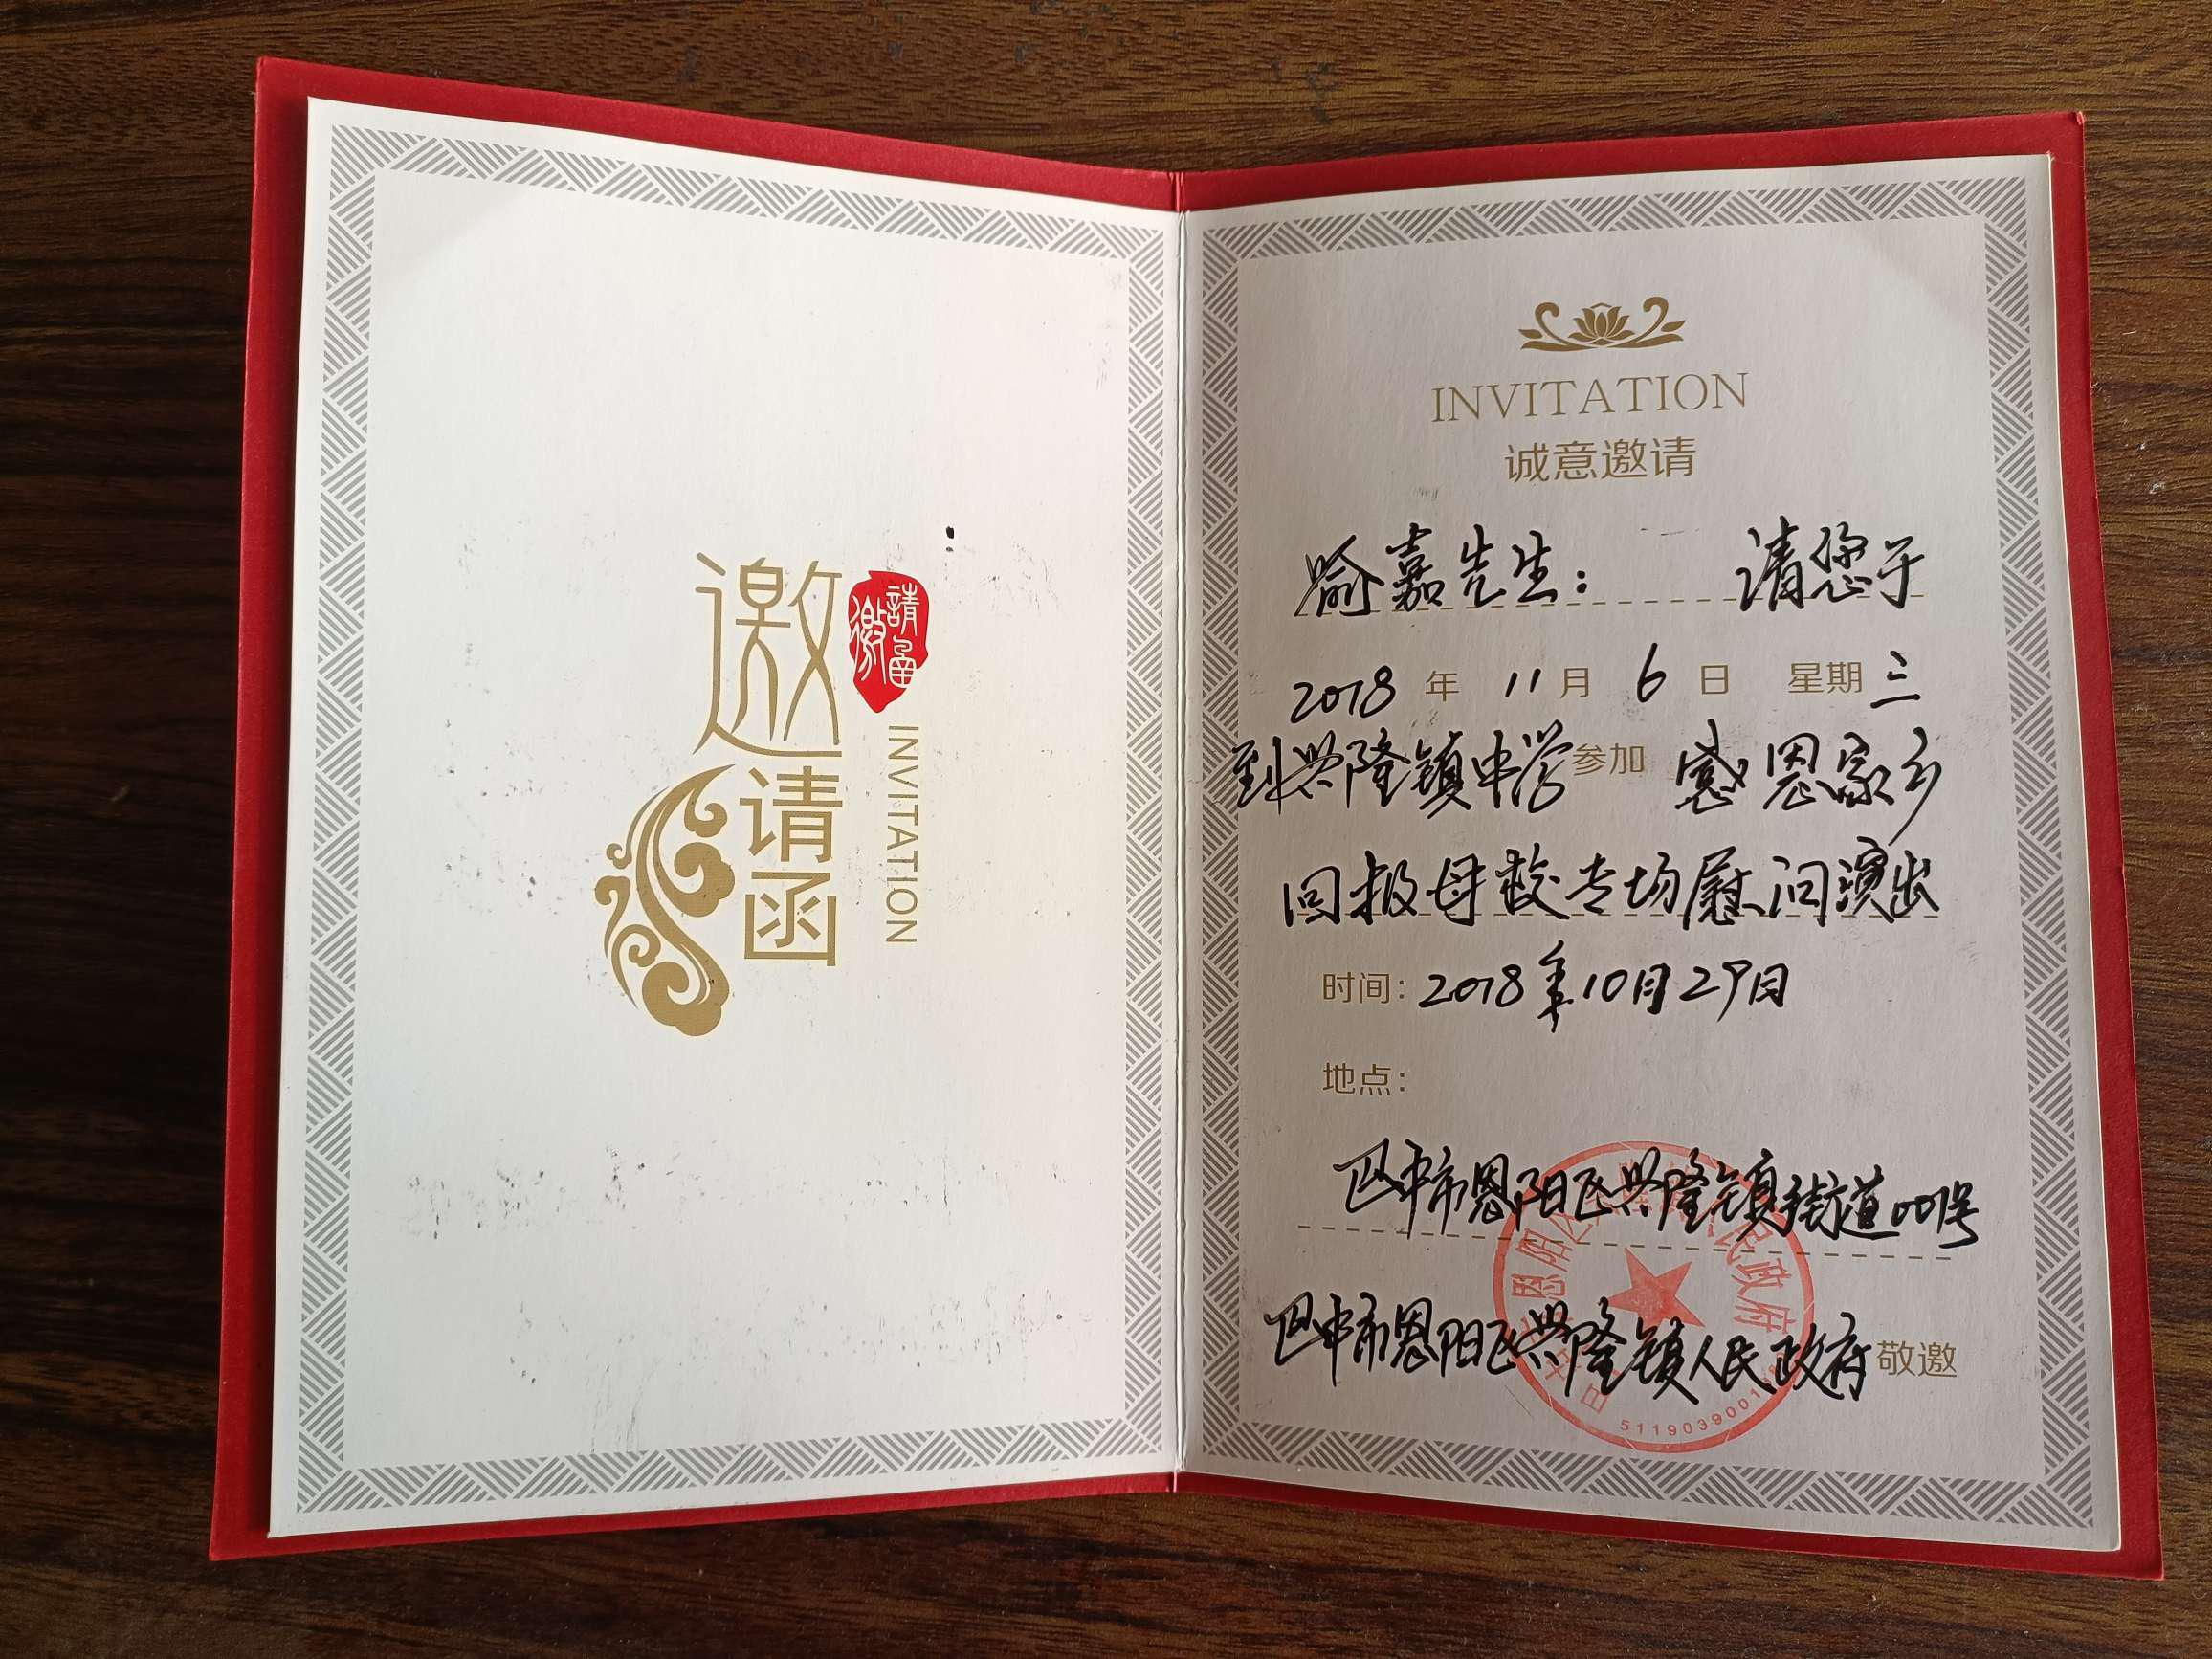 邀请函
請邀函
INVITATION
INVITATION
诚意邀请
喻嘉先生： 请您于
2018 年 11 月 6 日 星期 三
到兴隆镇中学参加 感恩家乡
回报母校专场慰问演出
时间：2018年10月29日
地点：
巴中市恩阳区兴隆镇街道001号
巴中市恩阳区兴隆镇人民政府敬邀
恩阳区 人民政府
511903900